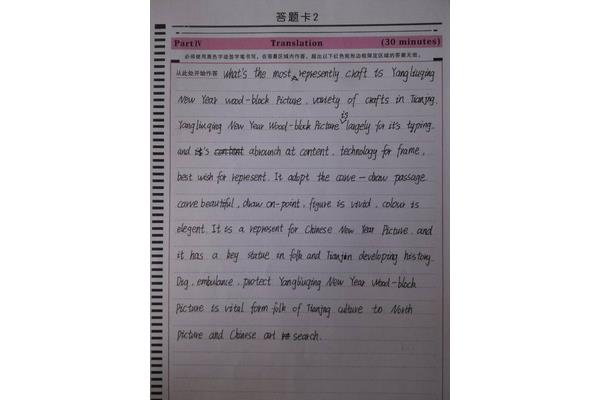 答题卡2
Part IV Translation (30 minutes)
必须使用黑色字迹签字笔书写，在答题区域内作答，超出以下红色矩形边框限定区域的答案无效。
从此处开始作答 What's the most represently craft is Yangliuqing
New Year wood-block Picture, variety of crafts in Tianjng.
Yangliuqing New Year Wood-block Picture is largely for it's typing.
and it's content abrounch at content, technology for frame,
best wish for represent. It adopt the carve-draw passage
carve beautiful, draw on-point, figure is vivid, colour is
elegent. It is a represent for Chinese New Year Picture, and
it has a key statue in folk and Tianjin developing history.
Dig, embulance, protect Yangliuqing New Year Wood-block
Picture is vital form folk of Tianjng culture to North
picture and Chinese art search.